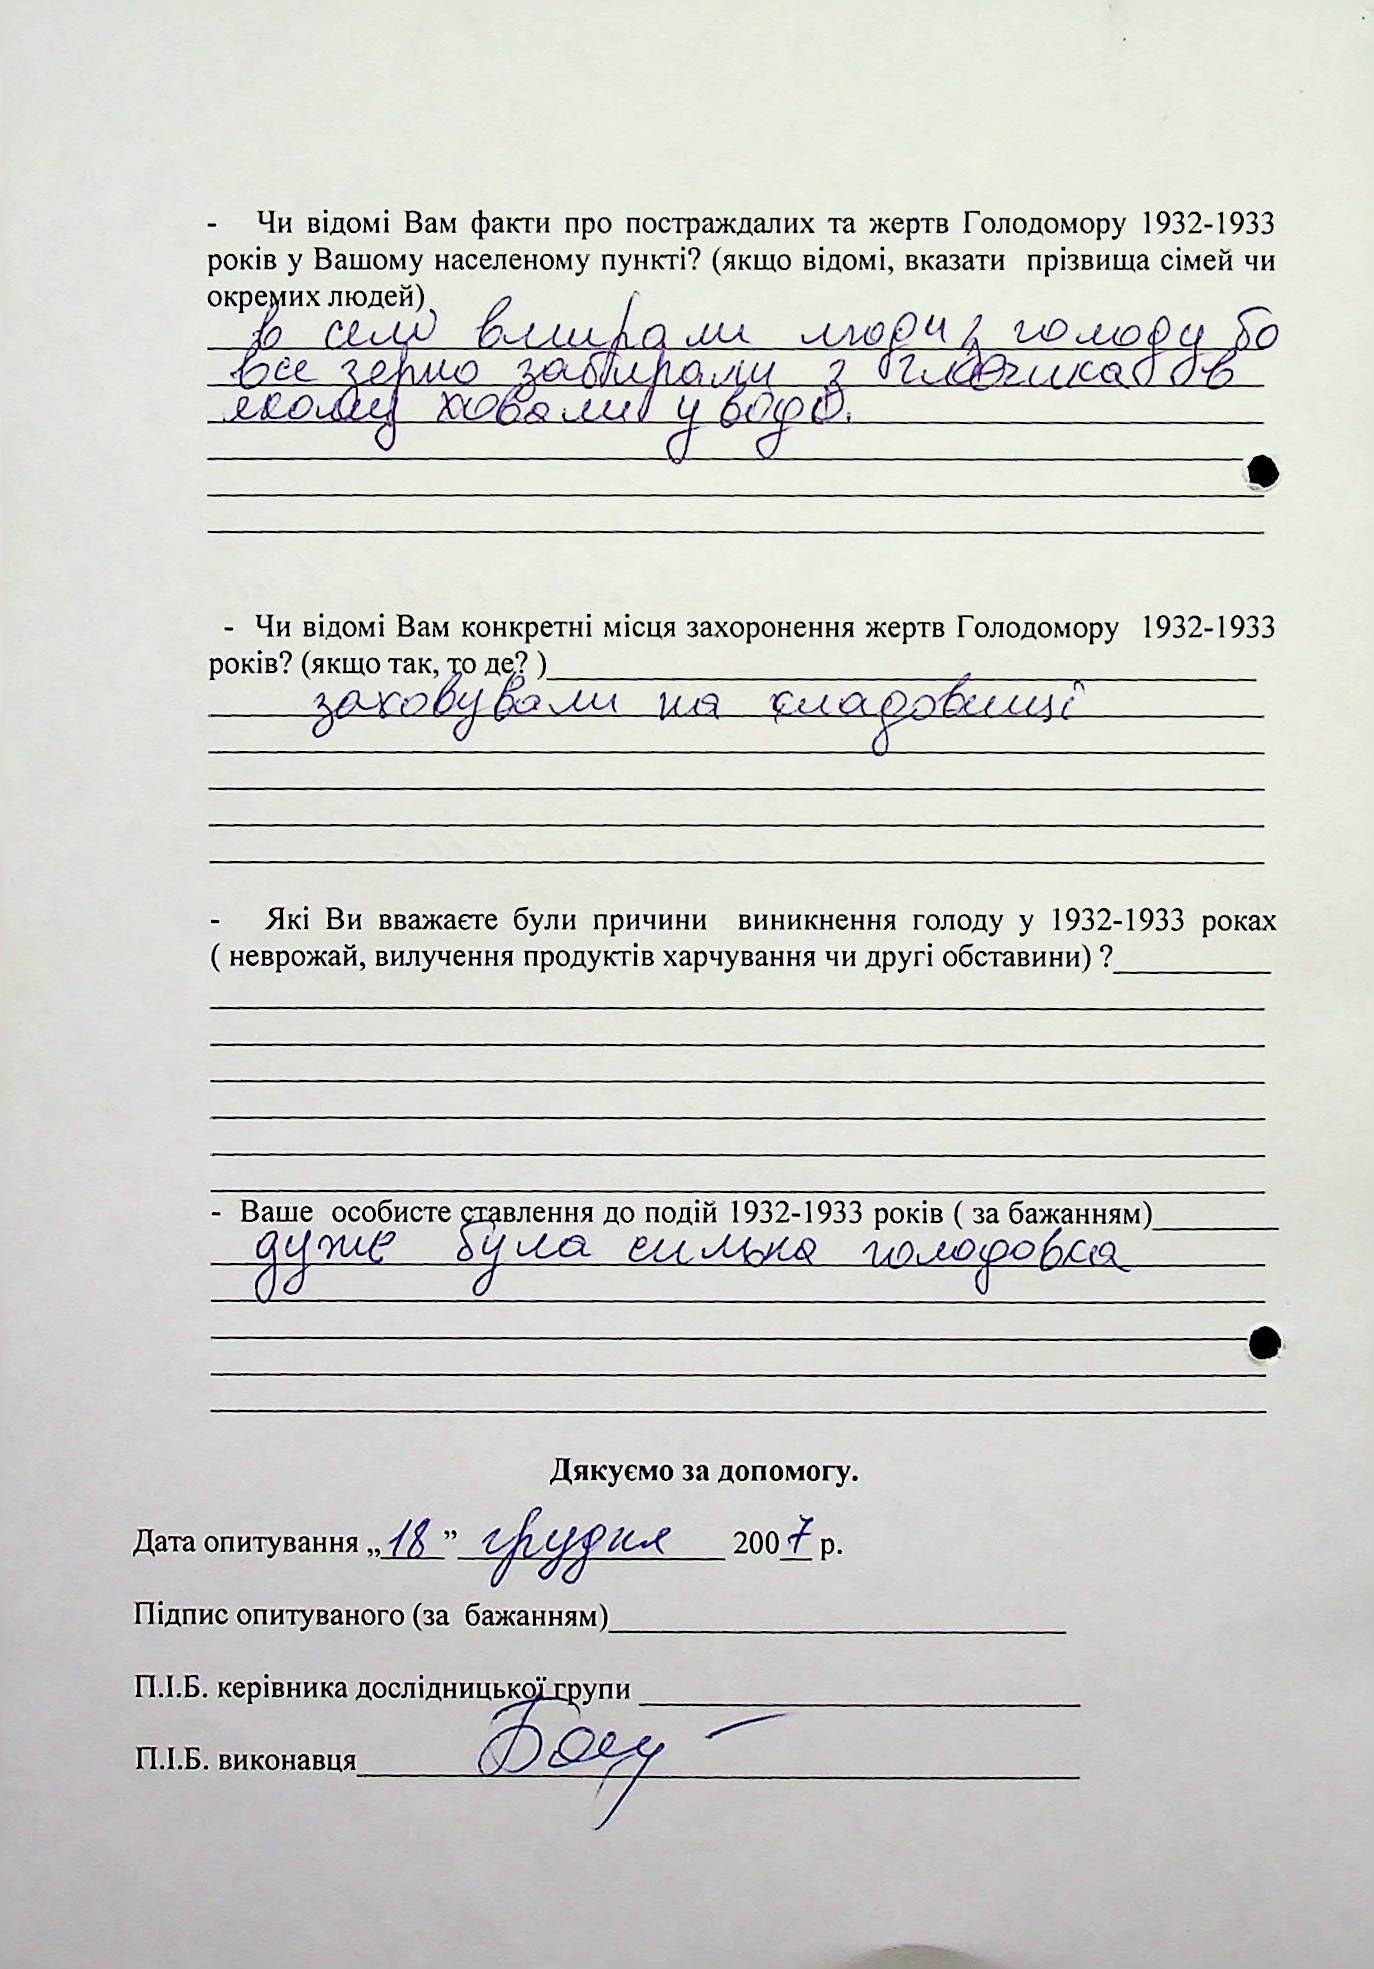 - Чи відомі Вам факти про постраждалих та жертв Голодомору 1932-1933
років у Вашому населеному пункті? (якщо відомі, вказати прізвища сімей чи
окремих людей)
в селі вмирали люди з голоду бо
все зерно забирали з глечика в
якому ховали у воді.
- Чи відомі Вам конкретні місця захоронення жертв Голодомору 1932-1933
років? (якщо так, то де? )
заховували на кладовищі
- Які Ви вважаєте були причини виникнення голоду у 1932-1933 роках
( неврожай, вилучення продуктів харчування чи другі обставини) ?
- Ваше особисте ставлення до подій 1932-1933 років ( за бажанням)
дуже була сильна голодовка
Дякуємо за допомогу.
Дата опитування „18” грудня 2007 р.
Підпис опитуваного (за бажанням)
П.І.Б. керівника дослідницької групи
П.І.Б. виконавця